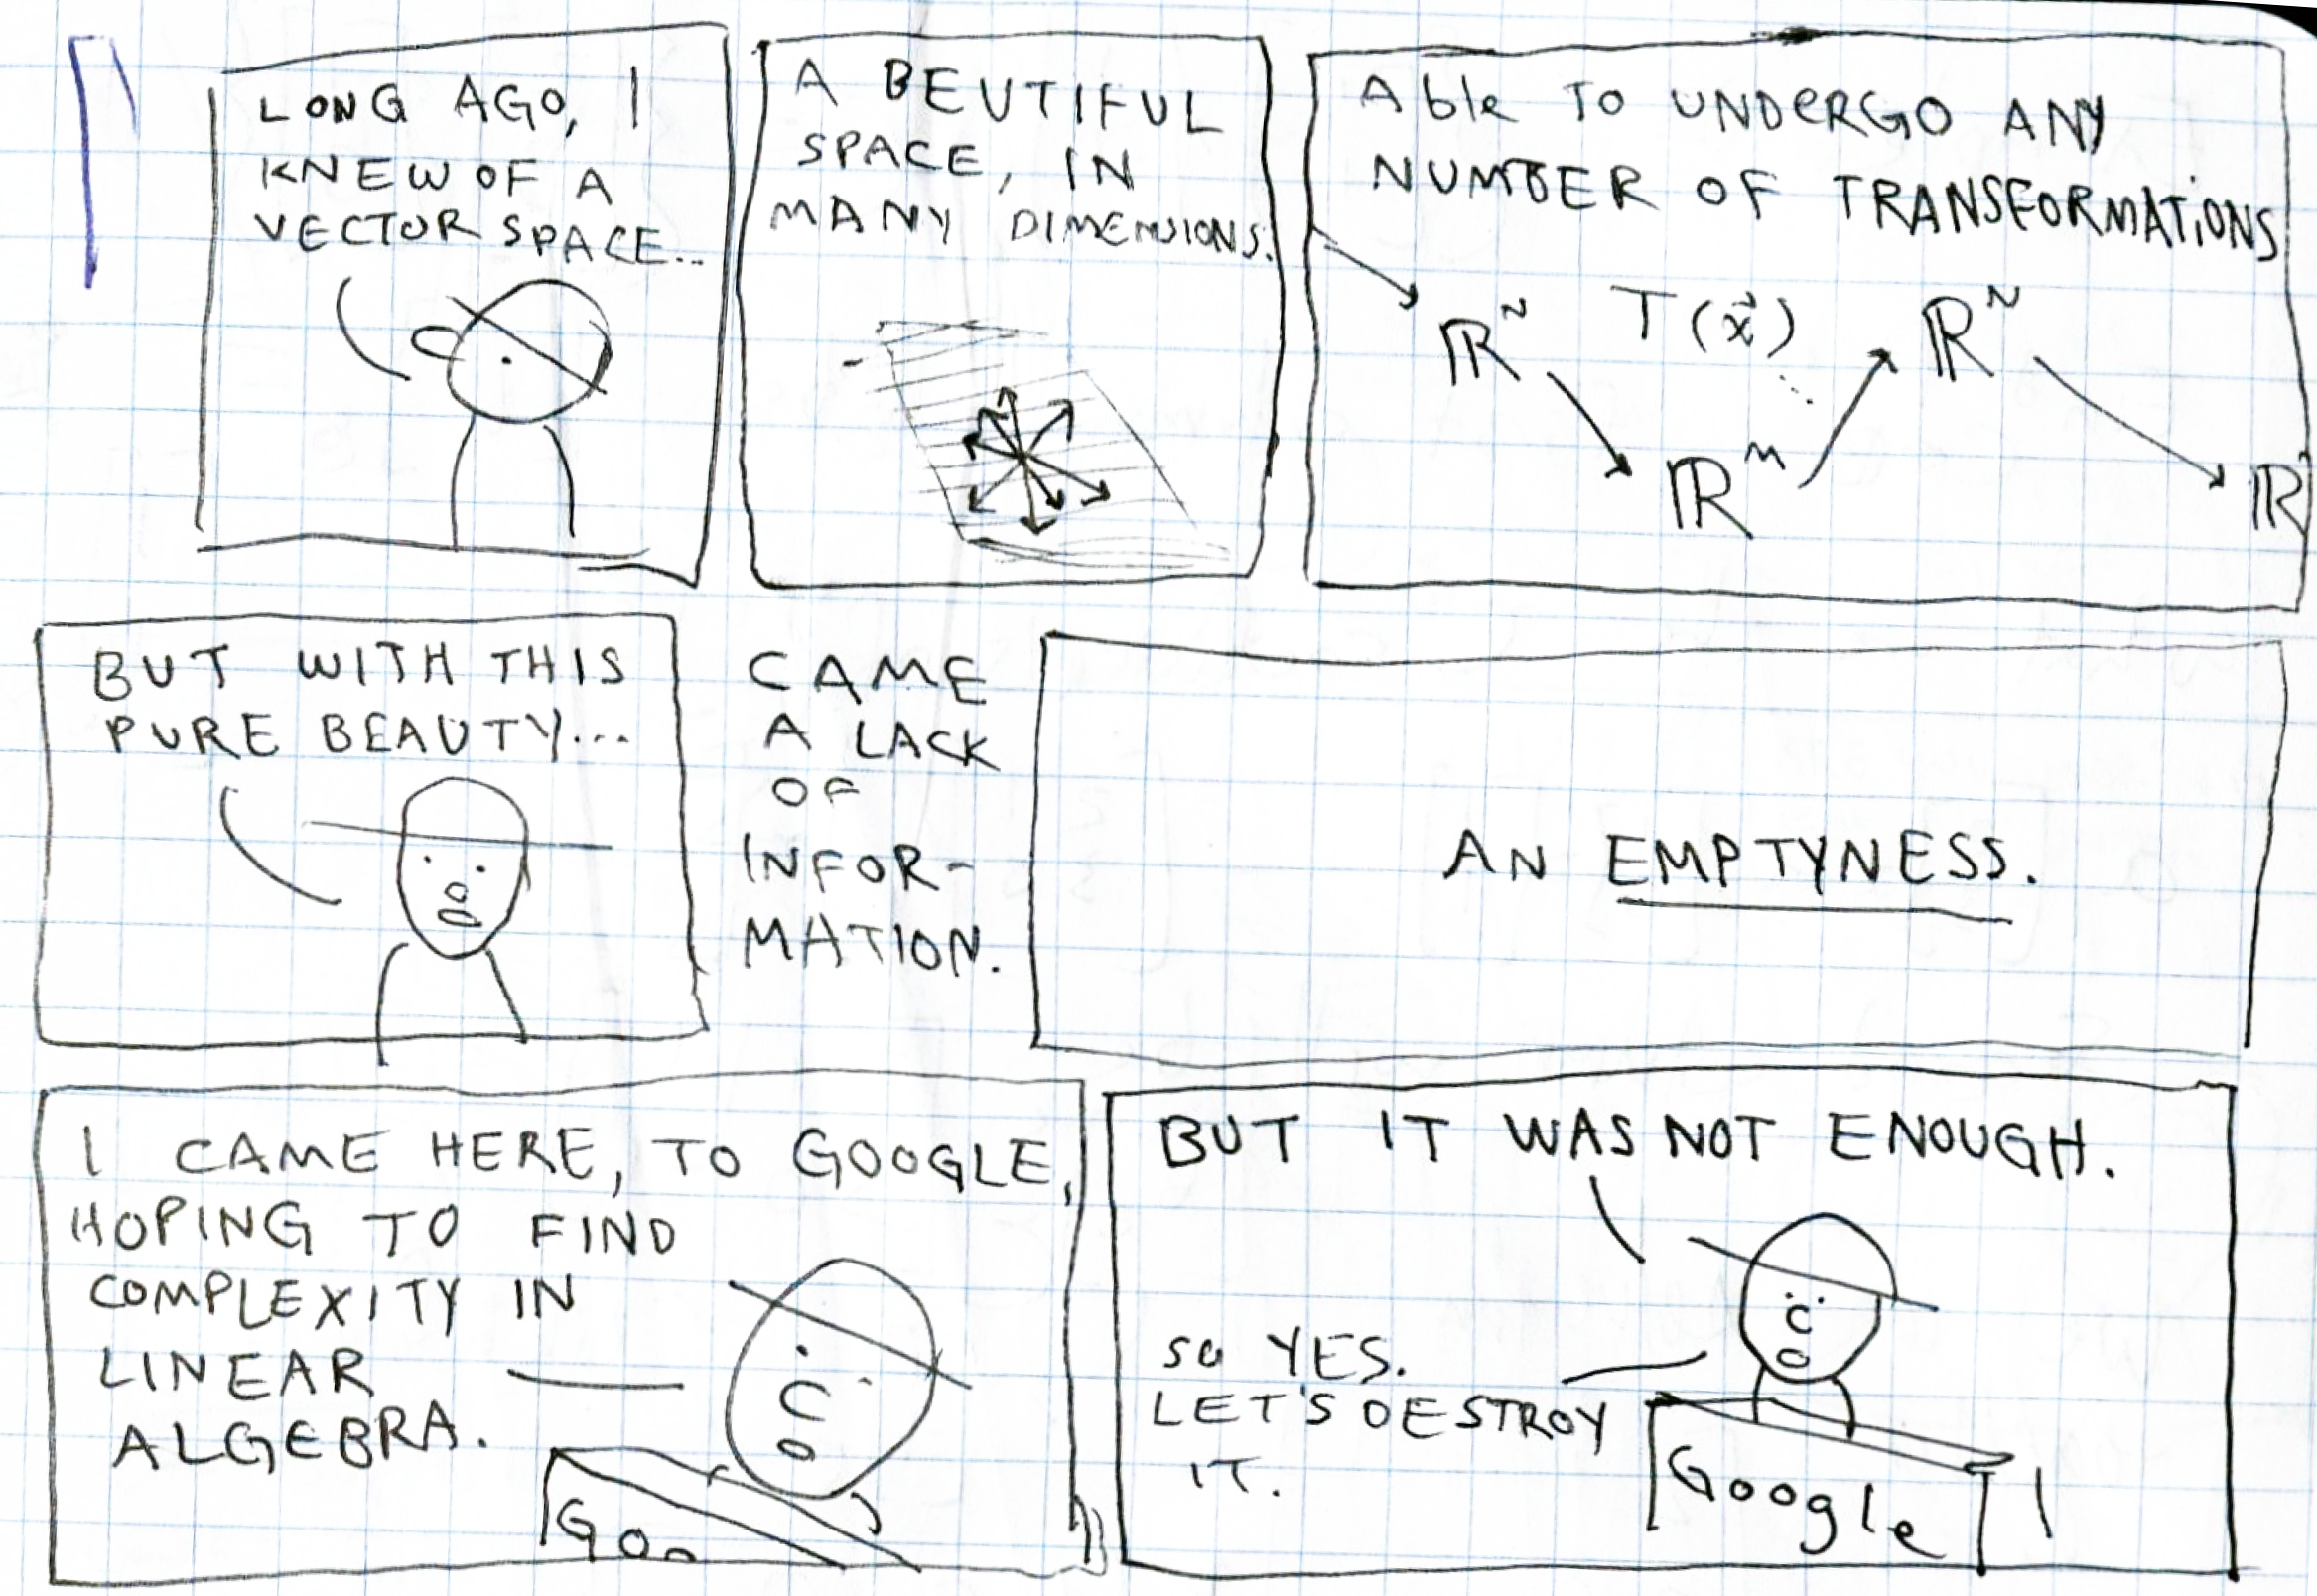 LONG AGO, I
KNEW OF A
VECTOR SPACE...
A BEUTIFUL
SPACE, IN
MANY DIMENSIONS.
Able TO UNDERGO ANY
NUMBER OF TRANSFORMATIONS
ℝᴺ T(x⃗) ℝᴺ
ℝᵐ ℝ
BUT WITH THIS
PURE BEAUTY...
CAME
A LACK
OF
INFOR-
MATION.
AN EMPTYNESS.
I CAME HERE, TO GOOGLE,
HOPING TO FIND
COMPLEXITY IN
LINEAR
ALGEBRA.
Goo
BUT IT WAS NOT ENOUGH.
SO YES.
LET'S DESTROY
IT.
Google